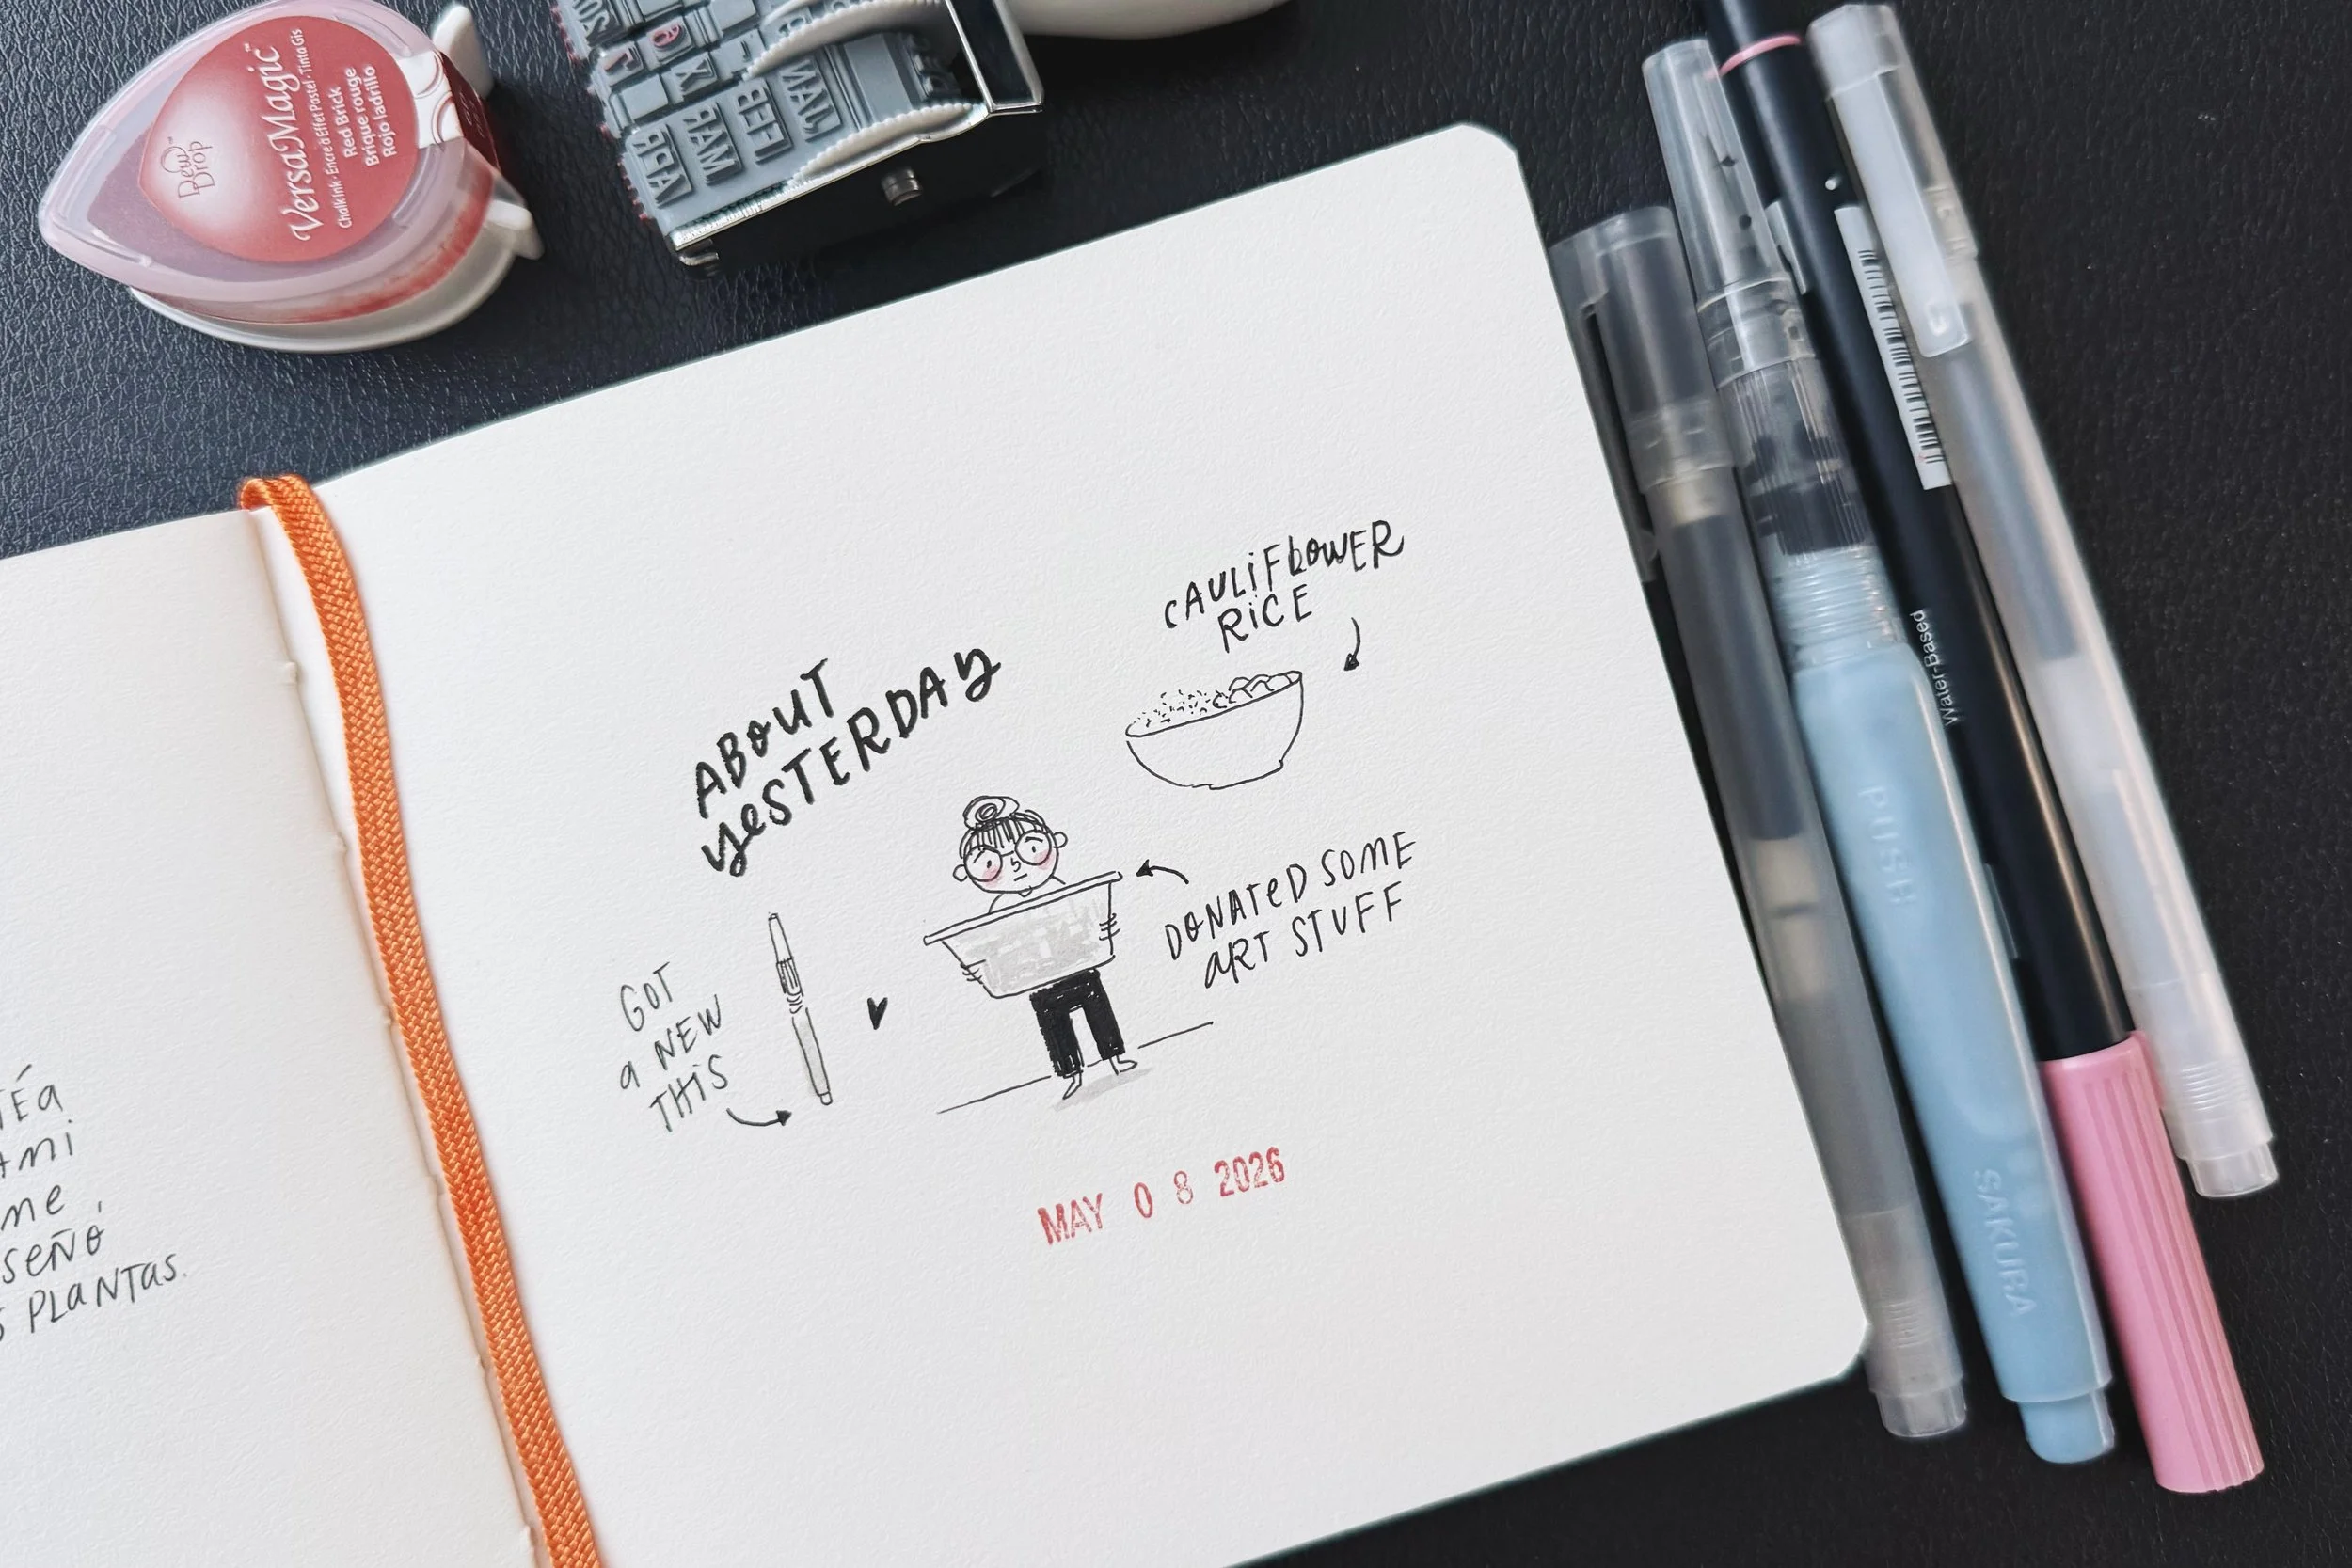 VersaMagic™
Chalk Ink · Encre à Effet Pastel · Tinta Gis
Red Brick
Brique rouge
Rojo ladrillo
Dew
Drop
JAN
FEB
MAR
APR
ABOUT
YESTERDAY
CAULIFLOWER
RICE
DONATED SOME
ART STUFF
GOT
A NEW
THIS
MAY 08 2026
PLANTAS.
Water-Based
PUSH
SAKURA